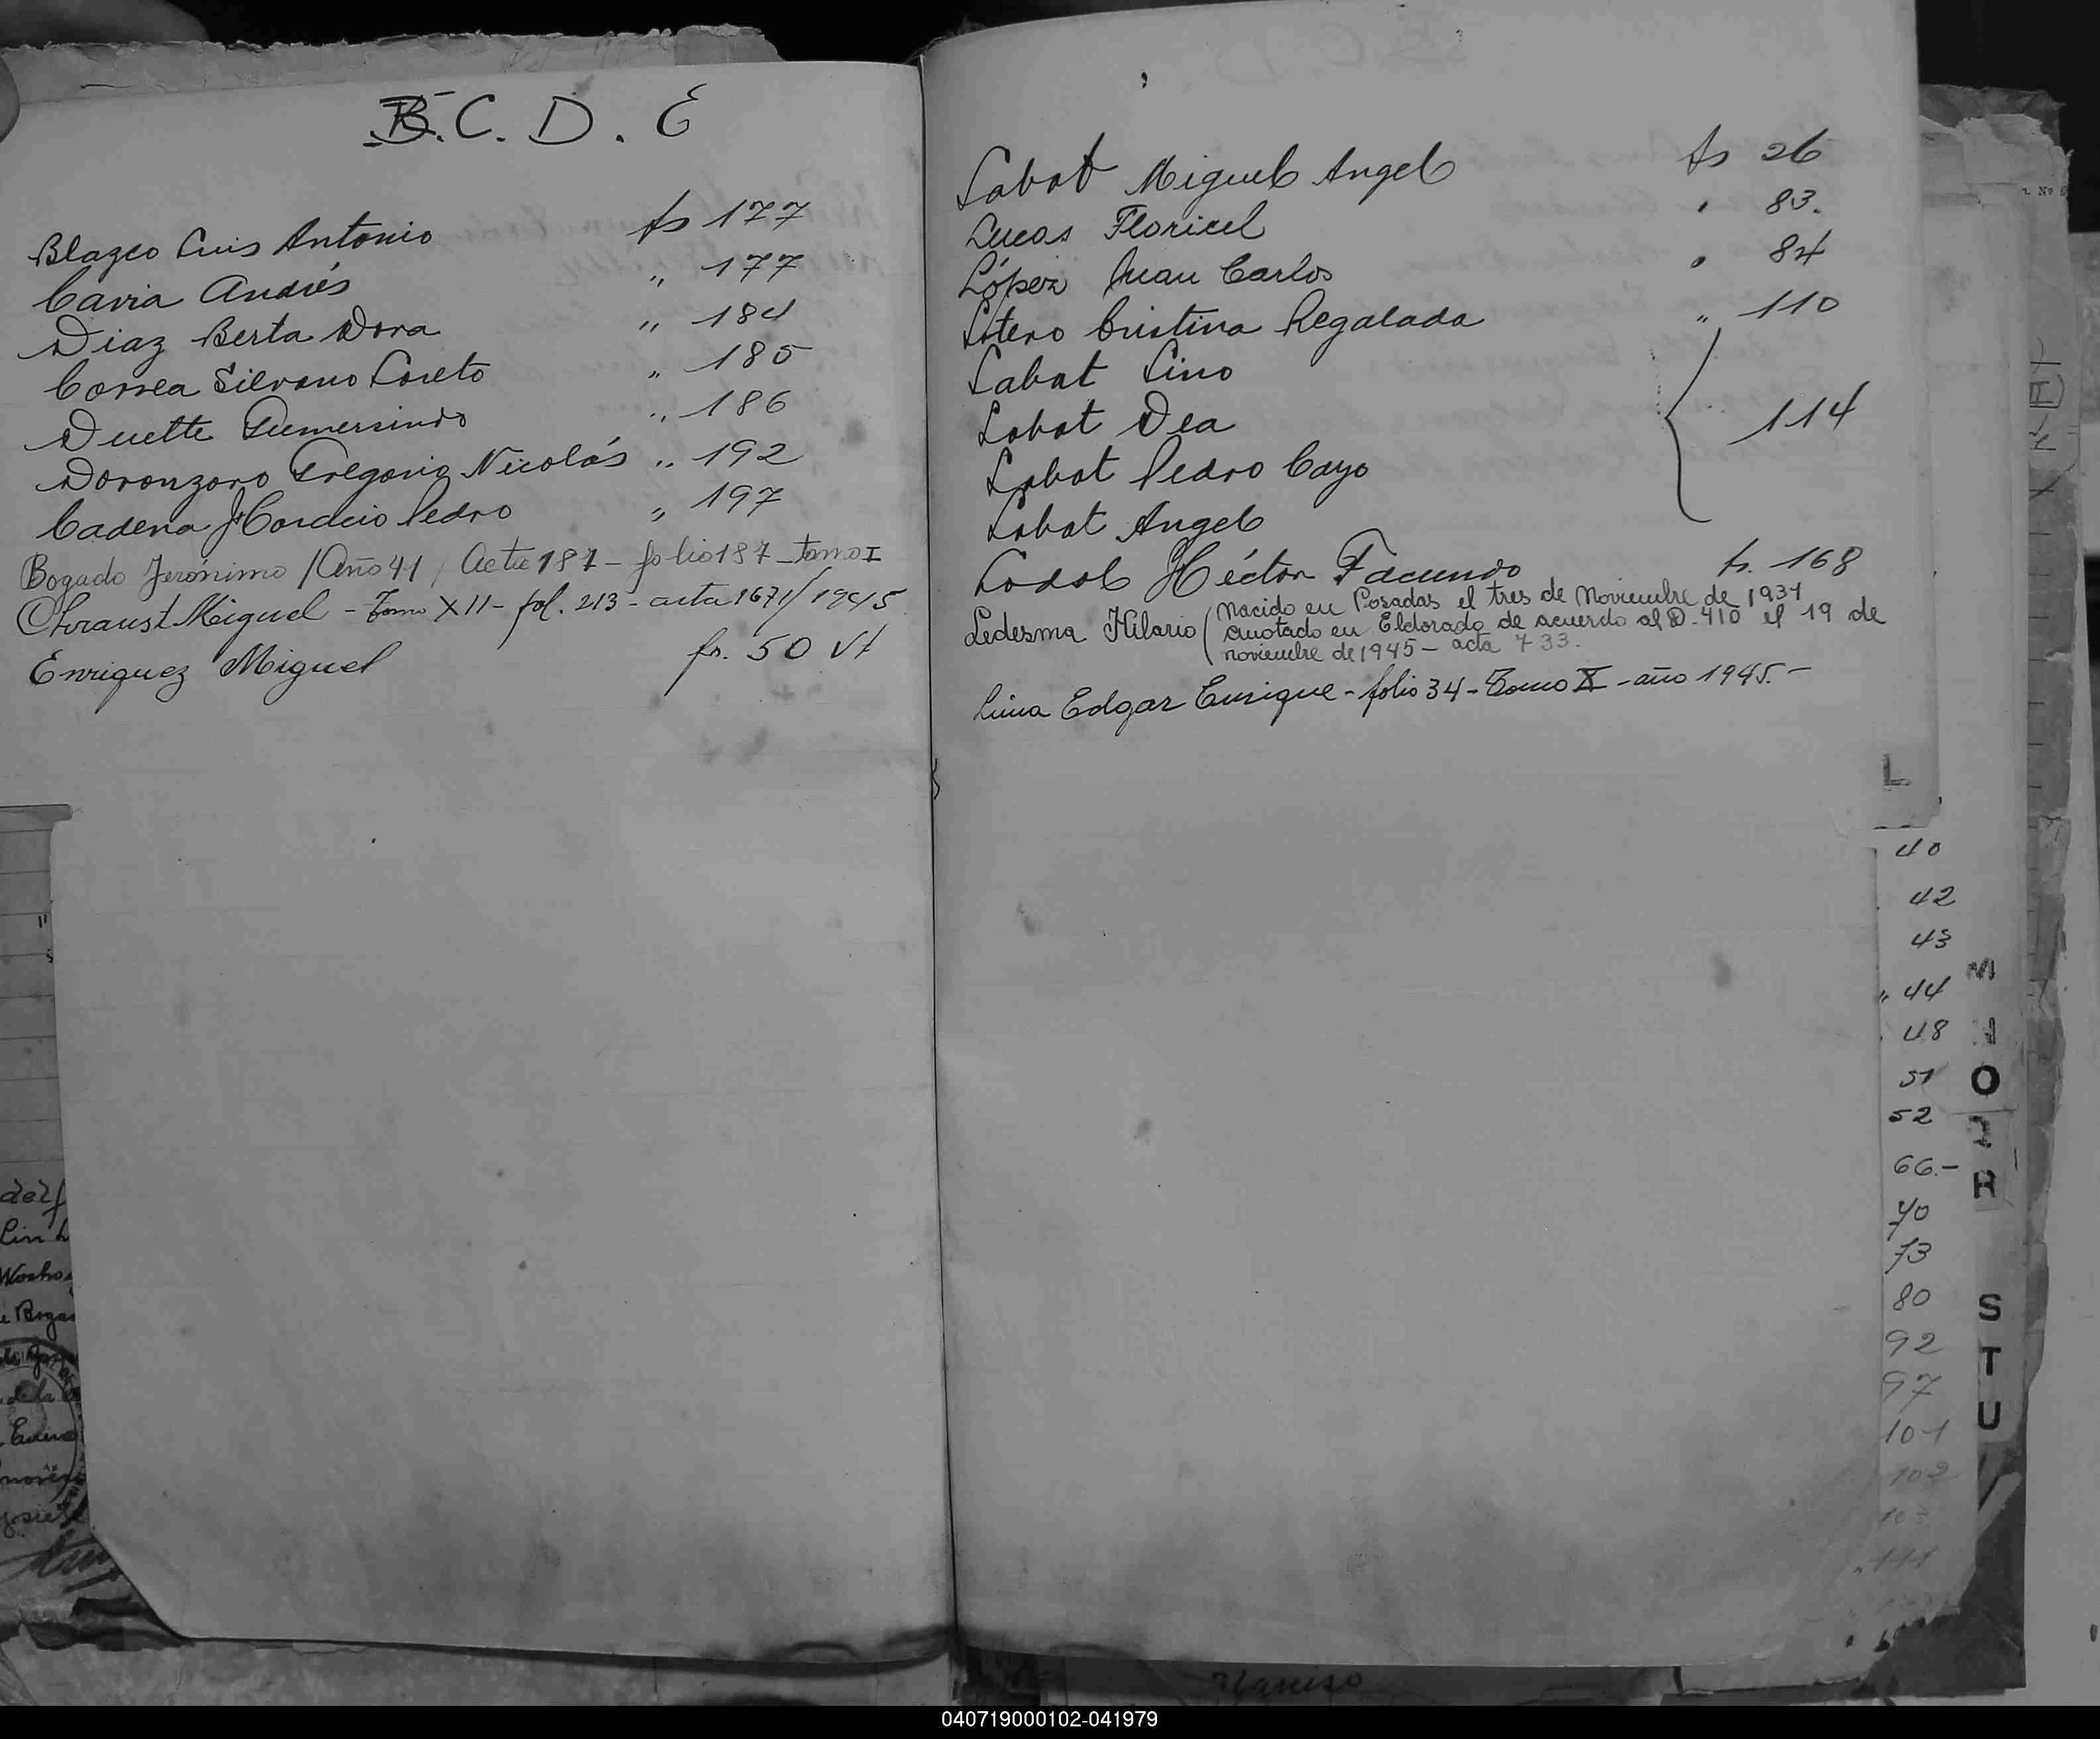 B. C. D. E
Blazco Luis Antonio fs 177
Cavia Andrés " 177
Diaz Berta Dora " 184
Correa Silvano Loreto " 185
Duette Gumersindo " 186
Doronzoro Gregorio Nicolás " 192
Cadena Horacio Pedro " 197
Bogado Jerónimo / Año 41 / Acta 187 - folio 187 - tomo I
Miguel - Tomo XII - fol. 213 - acta 1671/1945
Enriquez Miguel fs. 50 Vt
Labat Miguel Angel fs 26
Lucas Floricel " 83.
López Juan Carlos " 84
Lotero Cristina Regalada " 110
Labat Lino
Labat Dea
114
Labat Pedro Cayo
Labat Angel
Lodol Héctor Facundo fs. 168
Ledesma Hilario ( Nacido en Posadas el tres de Noviembre de 1934
anotado en Eldorado de acuerdo al D. 410 el 19 de
noviembre de 1945 - acta 733.
Lima Edgar Enrique - folio 34 - Tomo X - año 1945. -
L
40
42
43
M
" 44
48
N
51
O
52
66.-
R
70
73
80
S
92
T
97
U
101
102
103
111
Narciso
040719000102-041979